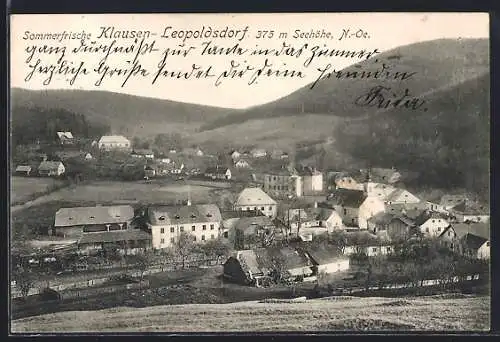 Sommerfrische Klausen-Leopoldsdorf. 375 m Seehöhe, N.-Oe.
ganz durchnäßt zur Tante in das Zimmer
Herzliche Grüße sendet dir deine Freundin
Frida